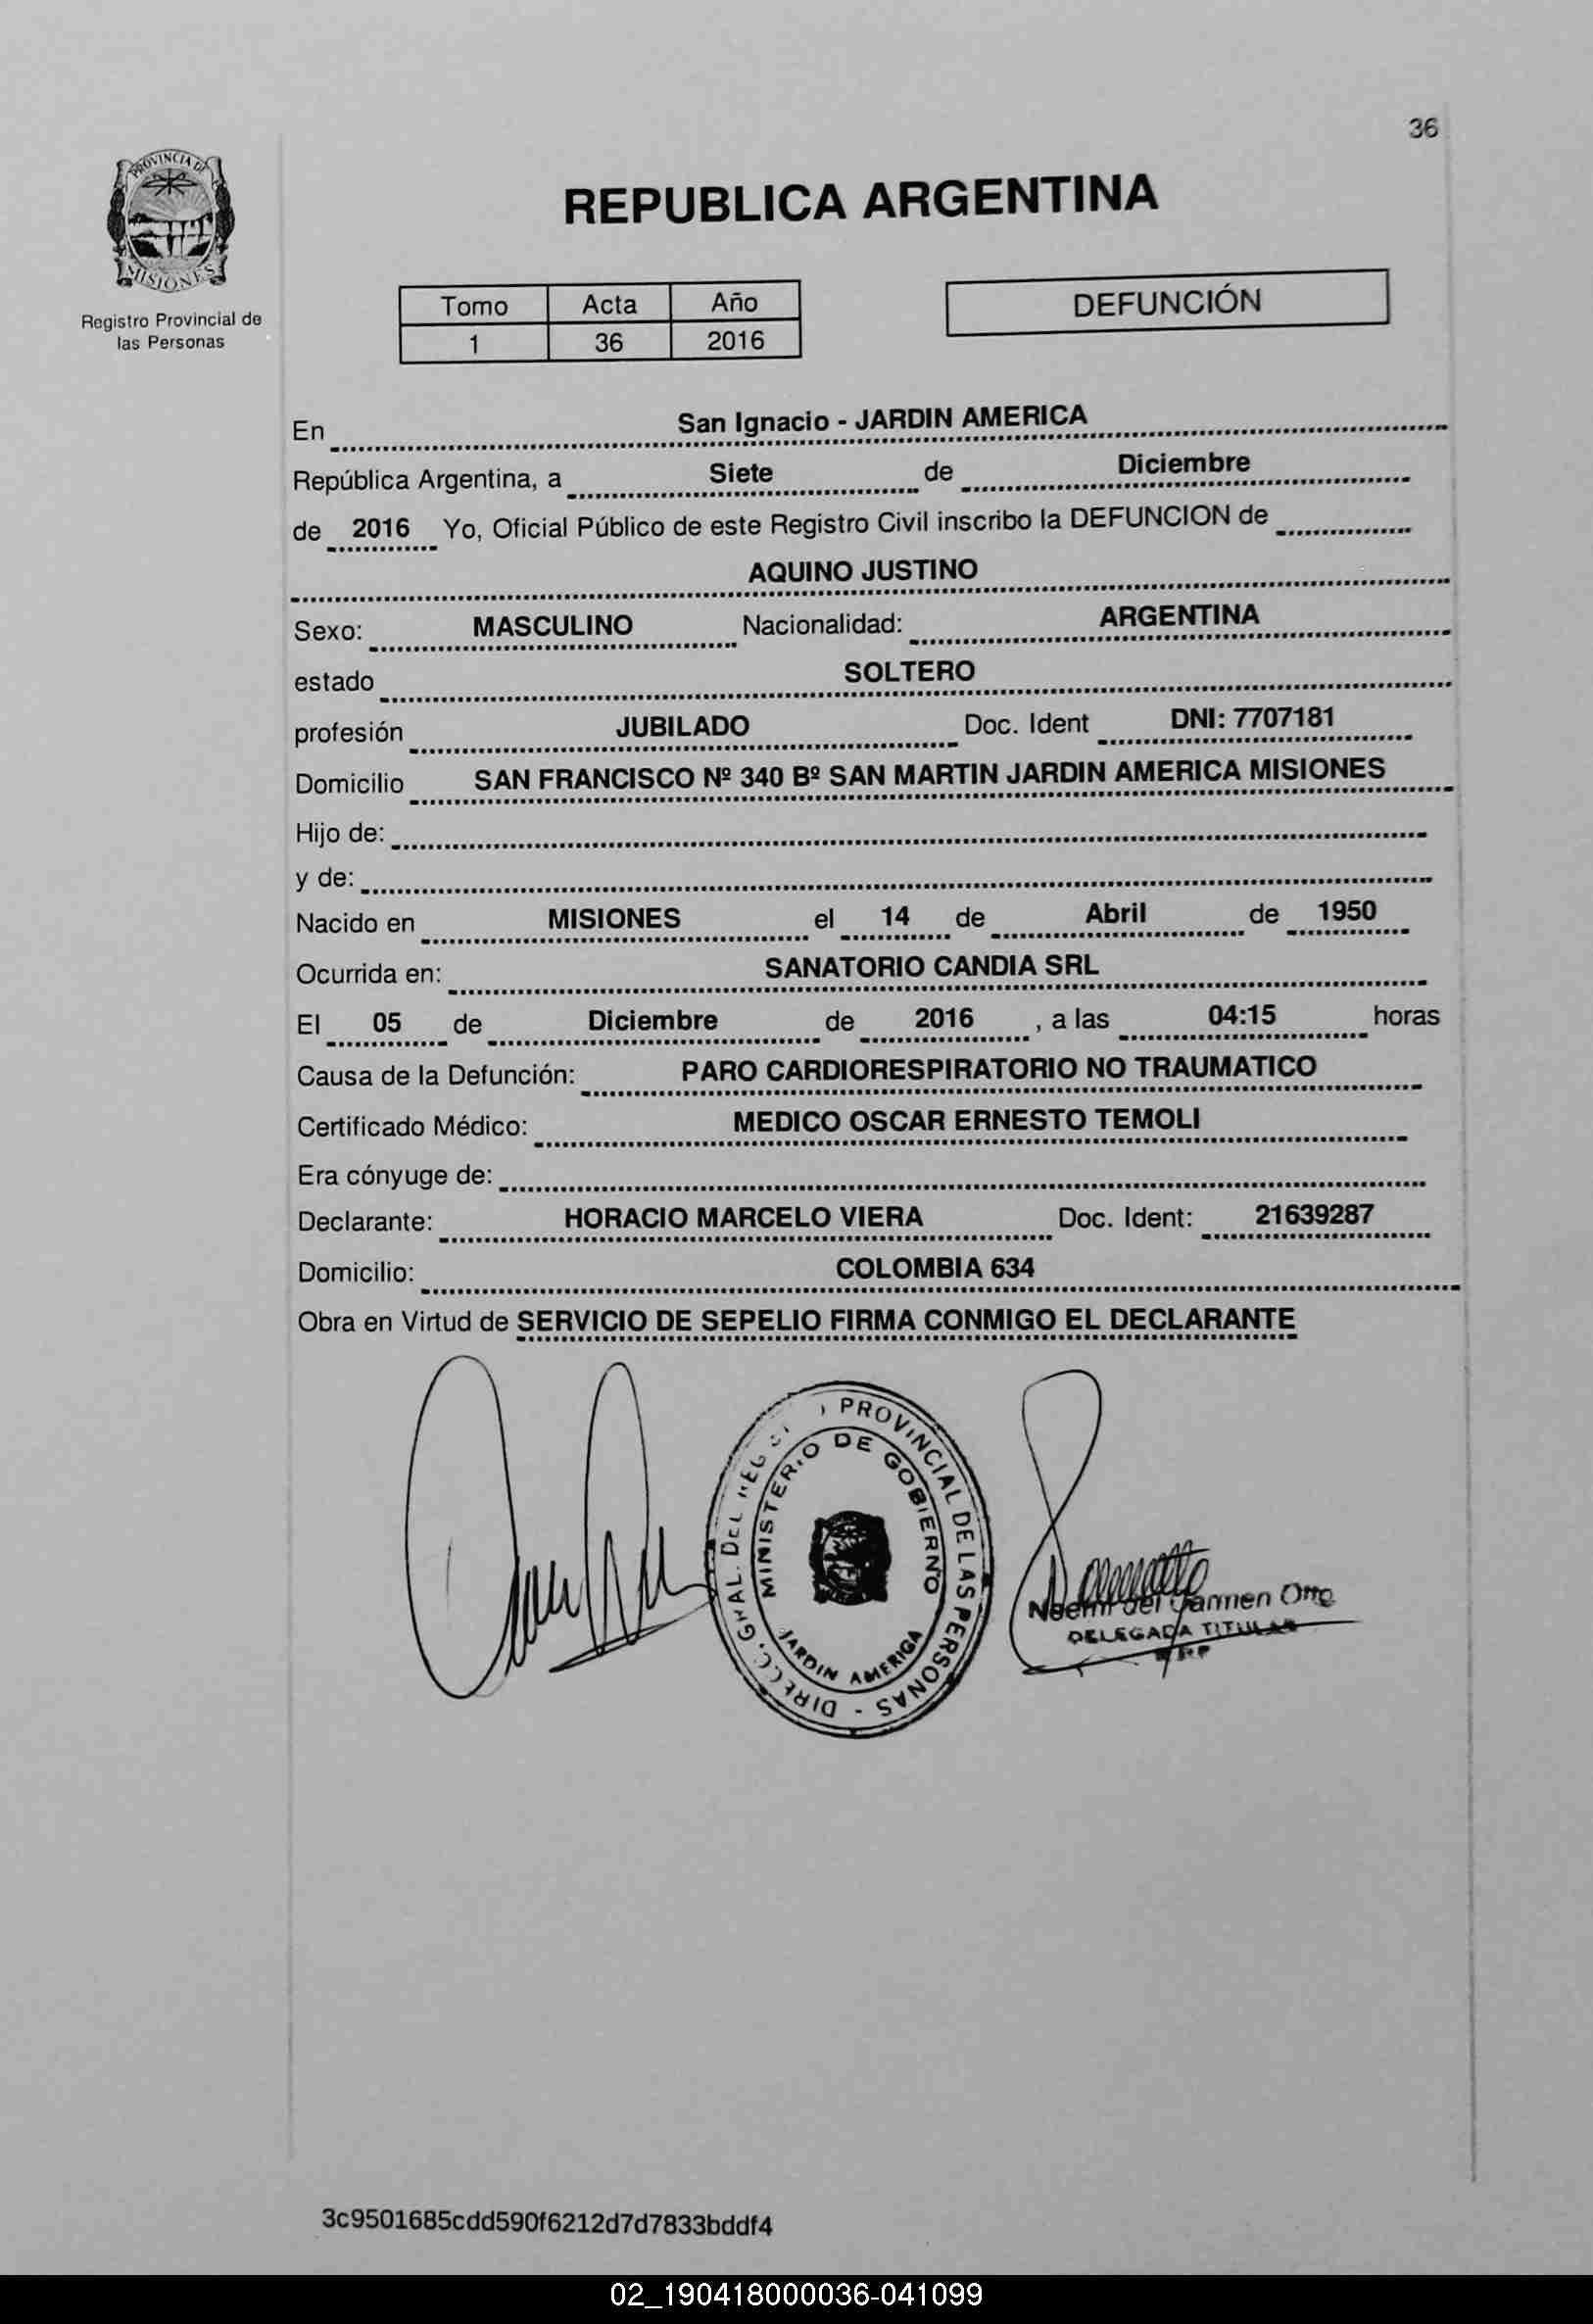 36
PROVINCIA DE
MISIONES
Registro Provincial de
las Personas
REPUBLICA ARGENTINA
Tomo Acta Año
1 36 2016
DEFUNCIÓN
En San Ignacio - JARDIN AMERICA
República Argentina, a Siete de Diciembre
de 2016 Yo, Oficial Público de este Registro Civil inscribo la DEFUNCION de
AQUINO JUSTINO
Sexo: MASCULINO Nacionalidad: ARGENTINA
estado SOLTERO
profesión JUBILADO Doc. Ident DNI: 7707181
Domicilio SAN FRANCISCO Nº 340 Bº SAN MARTIN JARDIN AMERICA MISIONES
Hijo de:
y de:
Nacido en MISIONES el 14 de Abril de 1950
Ocurrida en: SANATORIO CANDIA SRL
El 05 de Diciembre de 2016 , a las 04:15 horas
Causa de la Defunción: PARO CARDIORESPIRATORIO NO TRAUMATICO
Certificado Médico: MEDICO OSCAR ERNESTO TEMOLI
Era cónyuge de:
Declarante: HORACIO MARCELO VIERA Doc. Ident: 21639287
Domicilio: COLOMBIA 634
Obra en Virtud de SERVICIO DE SEPELIO FIRMA CONMIGO EL DECLARANTE
PROVINCIAL DE LAS PERSONAS -
MINISTERIO DE GOBIERNO
JARDIN AMERICA
Noemi del Carmen Otto
DELEGADA TITULAR
3c9501685cdd590f6212d7d7833bddf4
02_190418000036-041099